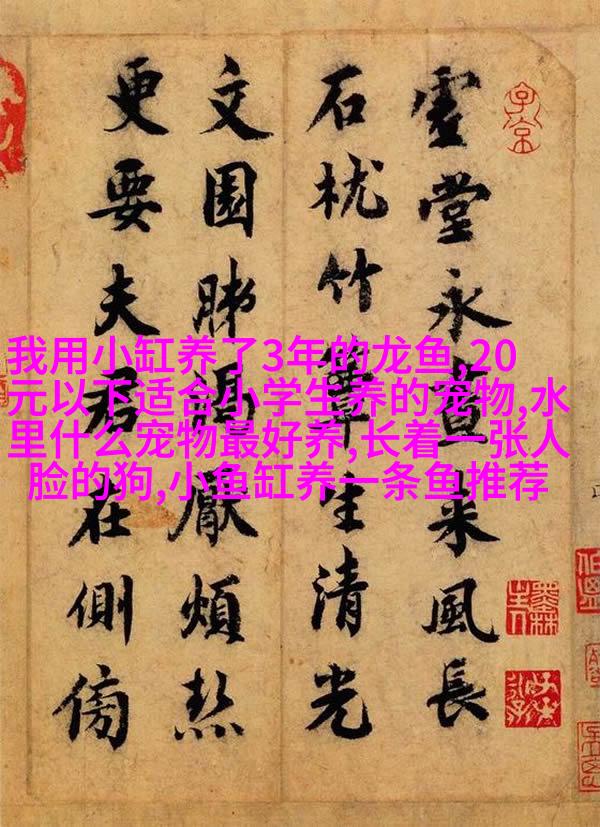 虛堂永晝來風長
石枕竹簟生清光
文園肺渴厭煩熱
更要夫君在側傍
我用小缸养了3年的龙鱼,20
元以下适合小学生养的宠物,水
里什么宠物最好养,长着一张人
脸的狗,小鱼缸养一条鱼推荐